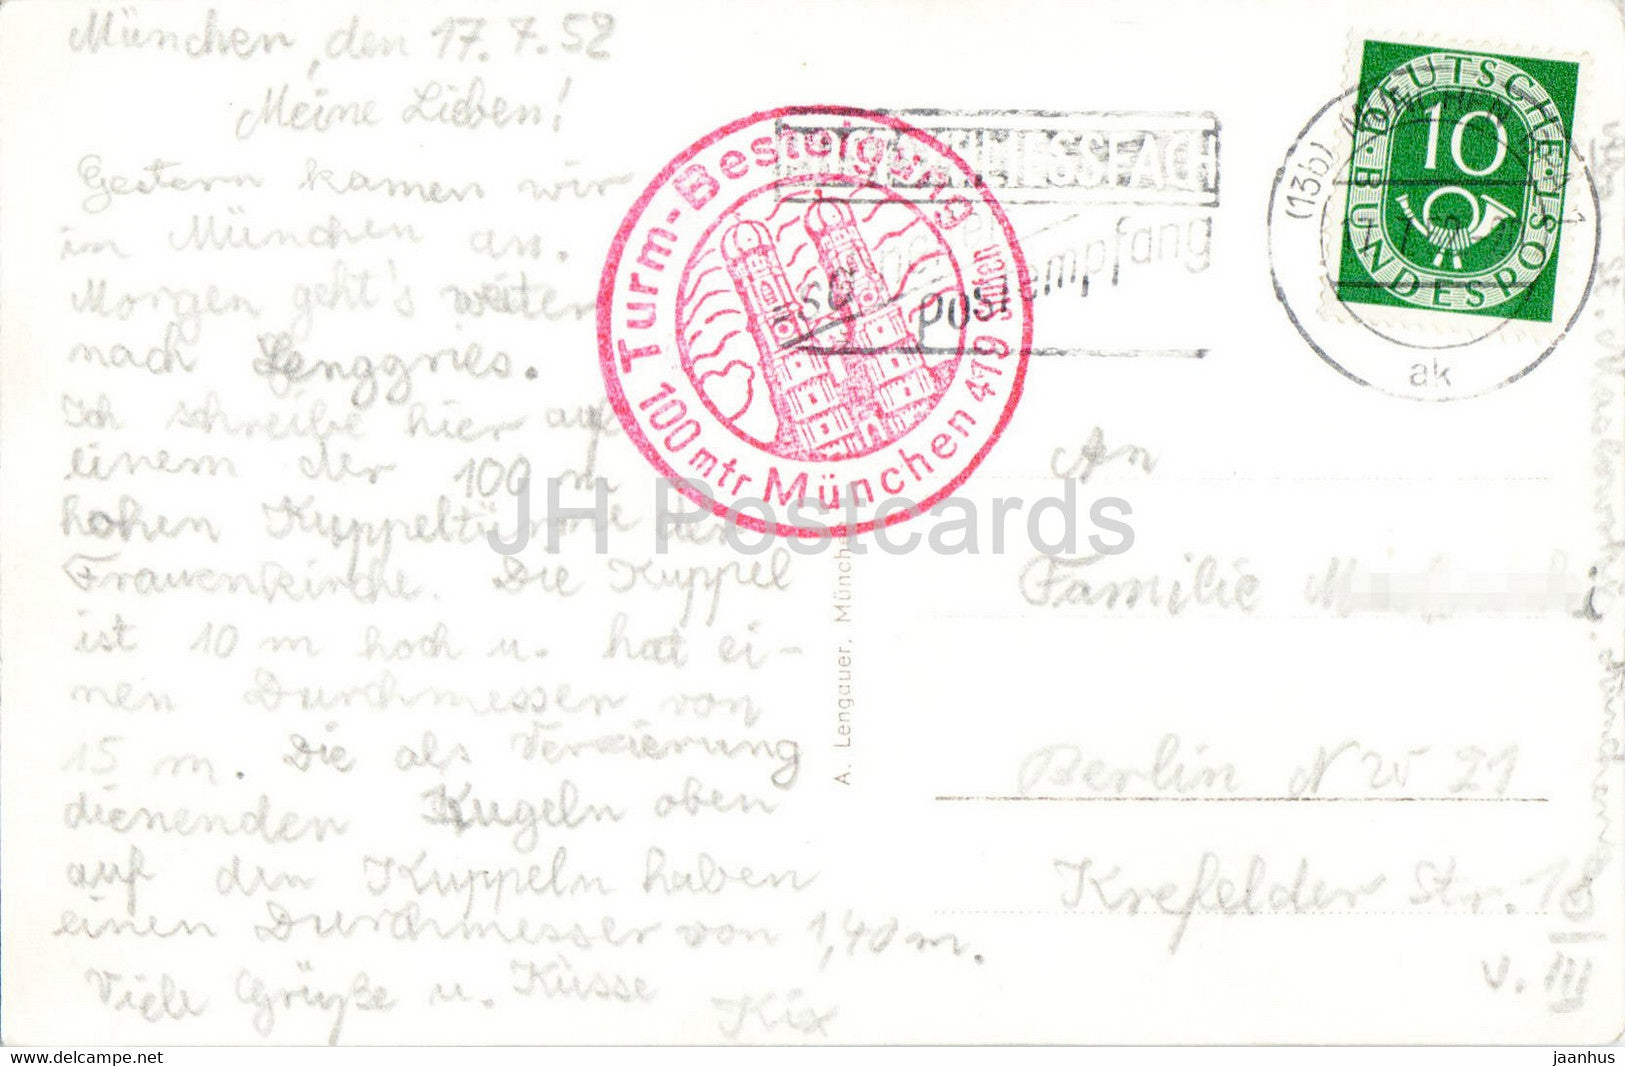 München, den 17.7.52
Meine Lieben!
Gestern kamen wir
in München an.
Morgen geht's weiter
nach Lenggries.
Ich schreibe hier auf
einem der 100 m
hohen Kuppeltürme der
Frauenkirche. Die Kuppel
ist 10 m hoch u. hat ei-
nen Durchmesser von
15 m. Die als Verzierung
dienenden Kugeln oben
auf den Kuppeln haben
einen Durchmesser von 1,40 m.
Viele Grüße u. Küsse
Kix
Turm-Besteigung
100 mtr München 419 Stufen
Postempfang
DEUTSCHE BUNDESPOST
10
(13b) MÜNCHEN
ak
A. Lengauer, München
An
Familie
Berlin NW 21
Krefelder Str. 18
v. III
JH Postcards
delcampe.net
jaanhus